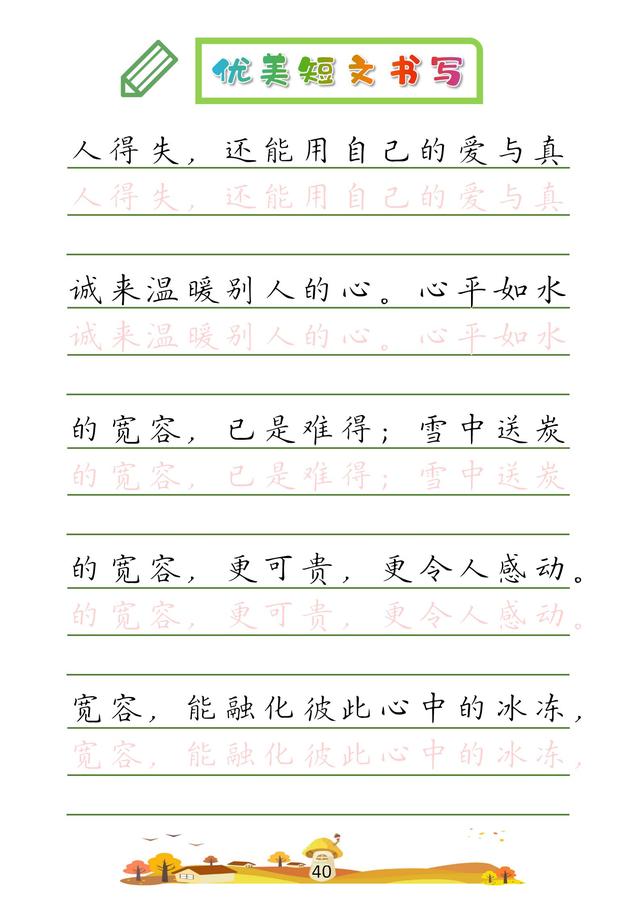 优美短文书写
人得失，还能用自己的爱与真
人得失，还能用自己的爱与真
诚来温暖别人的心。心平如水
诚来温暖别人的心。心平如水
的宽容，已是难得；雪中送炭
的宽容，已是难得；雪中送炭
的宽容，更可贵，更令人感动。
的宽容，更可贵，更令人感动。
宽容，能融化彼此心中的冰冻，
宽容，能融化彼此心中的冰冻，
40